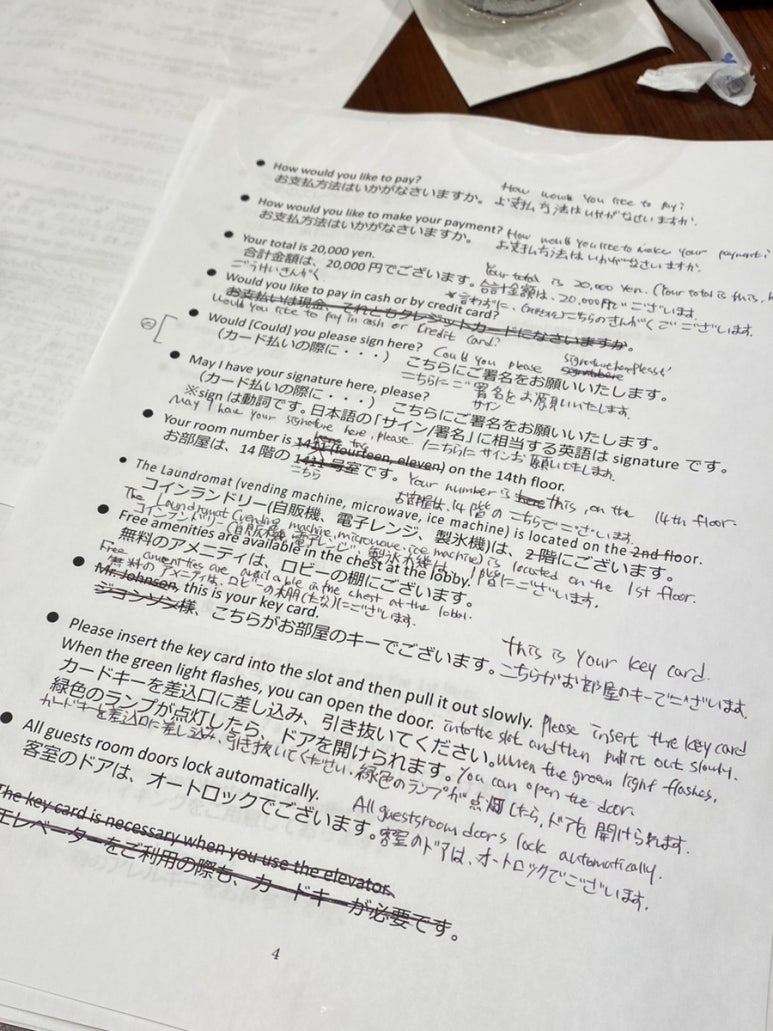 ● How would you like to pay? How would you like to pay?
お支払方法はいかがなさいますか。 お支払方法はいかがなさいますか.
● How would you like to make your payment? How would you like to make your payment?
お支払方法はいかがなさいますか。 お支払方法はいかがなさいますか.
● Your total is 20,000 yen. Your total is 20,000 yen. (Your total is this,
合計金額は、20,000 円でございます。 合計金額は、20,000円でございます.
ごうけいきんがく こちらのきんがくでございます.
● Would you like to pay in cash or by credit card?
お支払いは現金、それともクレジットカードになさいますか。
Would you like to pay in cash or Credit Card?
● Would [Could] you please sign here? Could you please signature here please!
(カード払いの際に・・・) こちらにご署名をお願いいたします。
こちらにご署名をお願いいたします.
● May I have your signature here, please? サイン
(カード払いの際に・・・) こちらにご署名をお願いいたします。
※sign は動詞です。日本語の「サイン/署名」に相当する英語は signature です。
May I have your signature here, please. こちらにサインお願いいたします.
● Your room number is 1411 (fourteen, eleven) on the 14th floor.
お部屋は、14 階の 1411 号室です。 Your number is here this, on the 14th floor.
こちら お部屋は、14階のこちらでございます.
● The Laundromat (vending machine, microwave, ice machine) is located on the 2nd floor.
コインランドリー(自販機、電子レンジ、製氷機)は、2 階にございます。
The Laundromat (vending machine, microwave, ice machine) is located on the 1st floor.
コインランドリー(自販機、電子レンジ、製氷機)は、1階にございます.
● Free amenities are available in the chest at the lobby.
無料のアメニティは、ロビーの棚にございます。
Free amenities are available in the chest at the lobby.
無料のアメニティは、ロビーの棚(たな)にございます.
● Mr. Johnson, this is your key card.
ジョンソン様、こちらがお部屋のキーでございます。 this is Your key card.
こちらがお部屋のキーでございます.
● Please insert the key card into the slot and then pull it out slowly. Please insert the key card
When the green light flashes, you can open the door. into the slot and then pull it out slowly.
カードキーを差込口に差し込み、引き抜いてください。 When the green light flashes,
緑色のランプが点灯したら、ドアを開けられます。 You can open the door.
カードキーを差込口に差し込み、引き抜いてください. 緑色のランプが点畑したら、ドアを開けられます.
● All guests room doors lock automatically. All guestsroom doors lock automatically.
客室のドアは、オートロックでございます。 客室のドアは、オートロックでございます.
The key card is necessary when you use the elevator.
エレベーターをご利用の際も、カードキーが必要です。
4